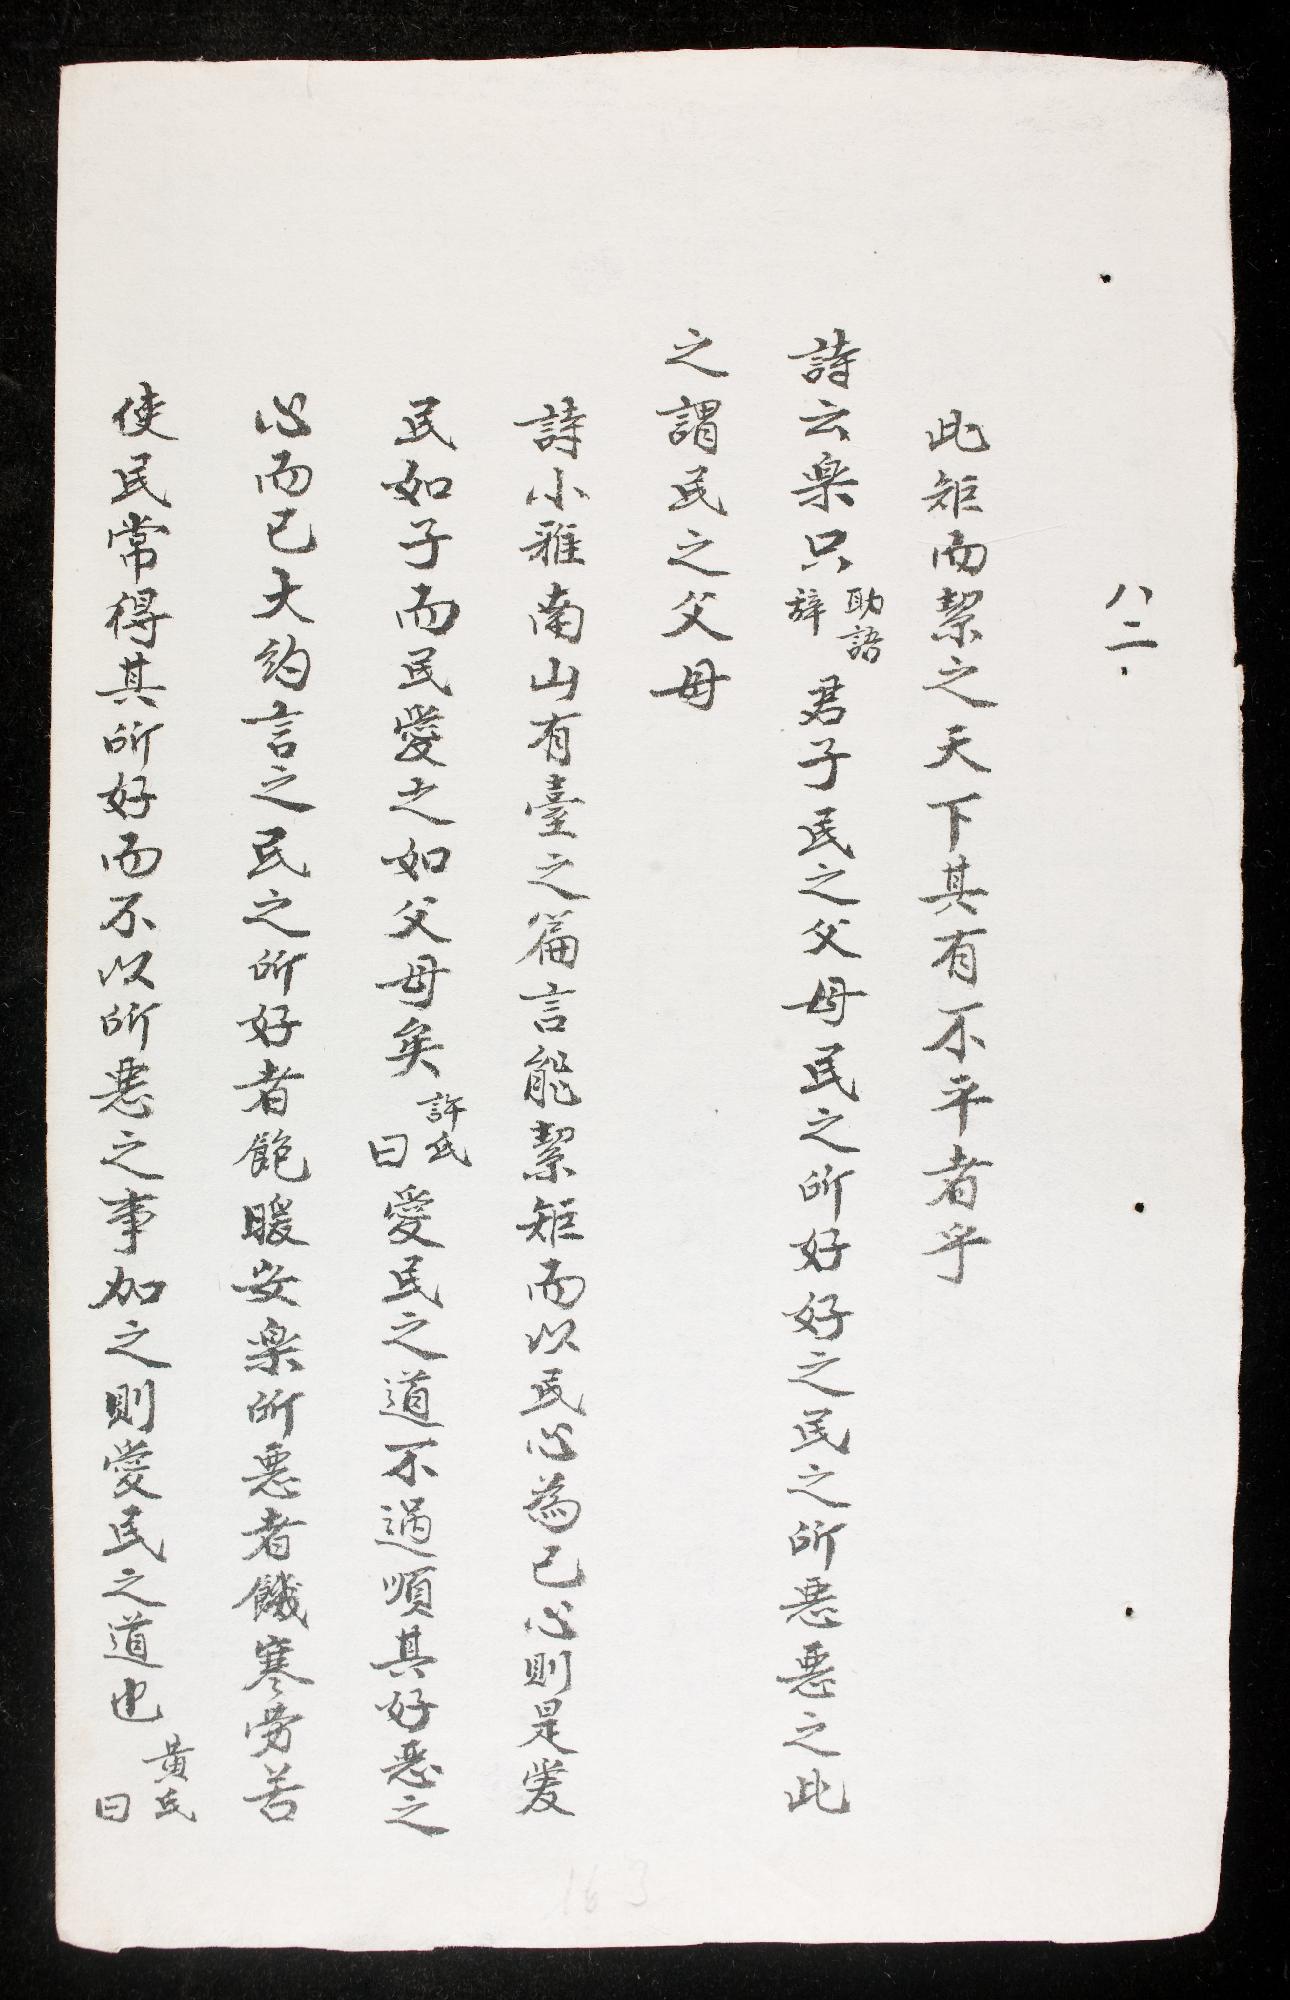 八二
此矩而絜之天下其有不平者乎
詩云樂只助語辞君子民之父母民之所好好之民之所悪悪之此
之謂民之父母
詩小雅南山有臺之篇言能絜矩而以民心為己心則是愛
民如子而民愛之如父母矣許氏曰愛民之道不過順其好悪之
心而已大約言之民之所好者飽暖安楽所悪者饑寒労苦
使民常得其所好而不以所悪之事加之則愛民之道也黄氏曰
163